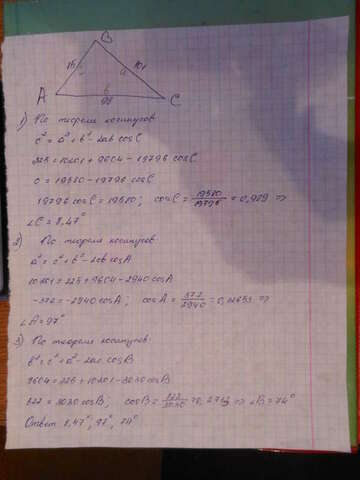 B
15 a 101
A b C
98
1) По теореме косинусов
c² = a² + b² - 2ab cosC
225 = 10201 + 9604 - 19796 cosC
0 = 19580 - 19796 cosC
19796 cosC = 19580; cosC = 19580/19796 = 0,989 =>
∠C = 8,47°
2) По теореме косинусов
a² = c² + b² - 2bc cosA
10201 = 225 + 9604 - 2940 cosA
-372 = -2940 cosA; cosA = 372/2940 = =>
∠A = 97°
3) По теореме косинусов
b² = c² + a² - 2ac cosB
9604 = 225 + 10201 - 3030 cosB
822 = 3030 cosB; cosB = 822/3030 = => ∠B = 74°
Ответ 8,47°, 97°, 74°